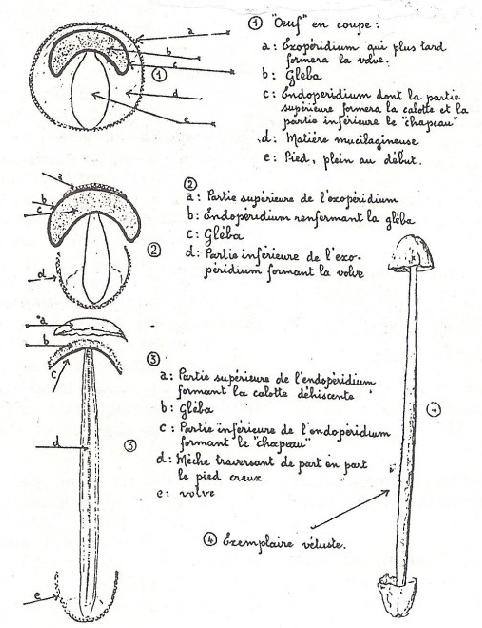 ① "Œuf" en coupe :
a : Exopéridium qui plus tard
formera la volve.
b : Gléba
c : Endopéridium dont la partie
supérieure formera la calotte et la
partie inférieure le "chapeau"
d : Matière mucilagineuse
e : Pied, plein au début.
a
b
c
①
d
e
②
a : Partie supérieure de l'exopéridium
b : Endopéridium renfermant la gléba
c : Gléba
d : Partie inférieure de l'exo-
péridium formant la volve
a
b
c
②
d
③
a : Partie supérieure de l'endopéridium
formant la calotte déhiscente
b : Gléba
c : Partie inférieure de l'endopéridium
formant le "chapeau"
d : Mèche traversant de part en part
le pied creux
e : volve
a
b
c
d
③
e
④
④ Exemplaire vétuste.